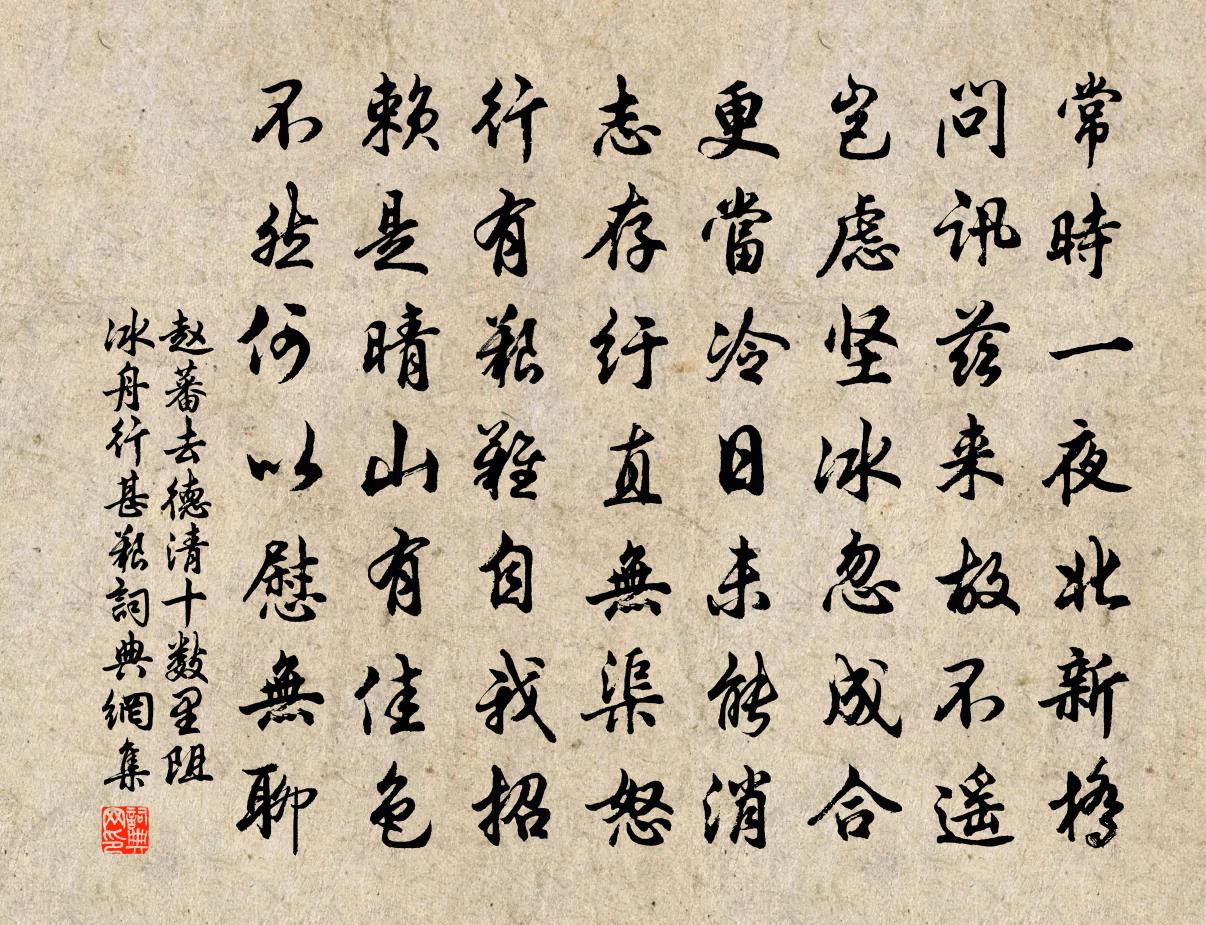 常時一夜北新橋
問訊茲来故不遥
豈慮坚冰忽成合
更當冷日未能消
志存紆直無渠怒
行有艱難自我招
赖是晴山有佳色
不然何以慰無聊
赵蕃去德清十数里阻
冰舟行甚艱詞典網集
詞典
网印